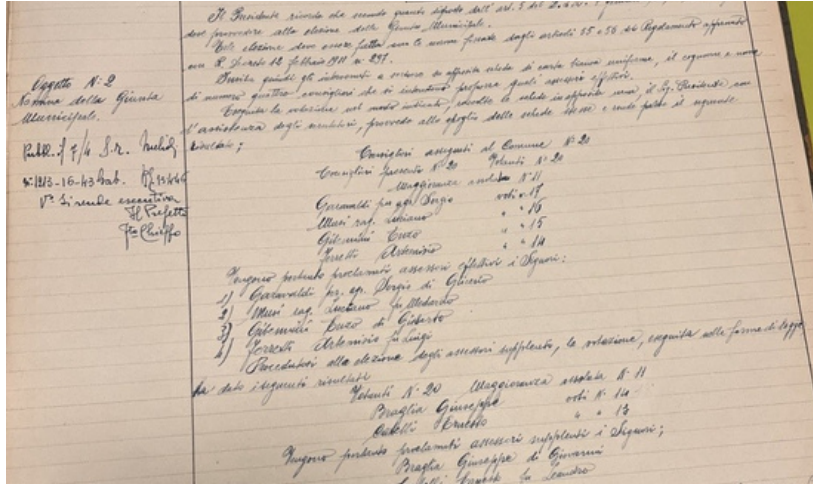 Il Presidente ricorda che secondo quanto disposto dall'art. 5 del
deve provvedere alla elezione della Giunta Municipale.
Tale elezione deve essere fatta con le norme fissate dagli articoli 55 e 56 del Regolamento approvato
con R. Decreto 12 febbraio 1911 n. 297.
Invita quindi gli intervenuti a scrivere su apposita scheda di carta bianca uniforme, il cognome e nome
di numero quattro consiglieri che si intendono preporre quali assessori effettivi.
Eseguita la votazione nel modo indicato, raccolte le schede in apposita urna, il Sig. Presidente con
l'assistenza degli scrutatori, provvede allo spoglio delle schede stesse e rende palese il seguente
risultato;
Oggetto N: 2
Nomina della Giunta
Municipale.
Pubbl. il 7/4
V° Si rende esecutiva
Il Prefetto
fto Chieffo
Consiglieri assegnati al Comune N: 20
Consiglieri presenti N: 20 Votanti N: 20
Maggioranza assoluta N: 11
Garavaldi per. agr. Sergio voti n. 17
Musi rag. Luciano " " 16
Gibertini Enzo " " 15
Ferretti Artemisio " " 14
Vengono pertanto proclamati assessori effettivi i Signori:
1) Garavaldi per. agr. Sergio di
2) Musi rag. Luciano fu Medardo
3) Gibertini Enzo di Gilberto
4) Ferretti Artemisio fu Luigi
Procedutosi alla elezione degli assessori supplenti, la votazione, eseguita nelle forme di legge,
ha dato i seguenti risultati
Votanti N: 20 Maggioranza assoluta N: 11
Braglia Giuseppe voti N: 14
Ernesto " " 13
Vengono pertanto proclamati assessori supplenti i Signori;
Braglia Giuseppe di Giovanni
Ernesto fu Leandro